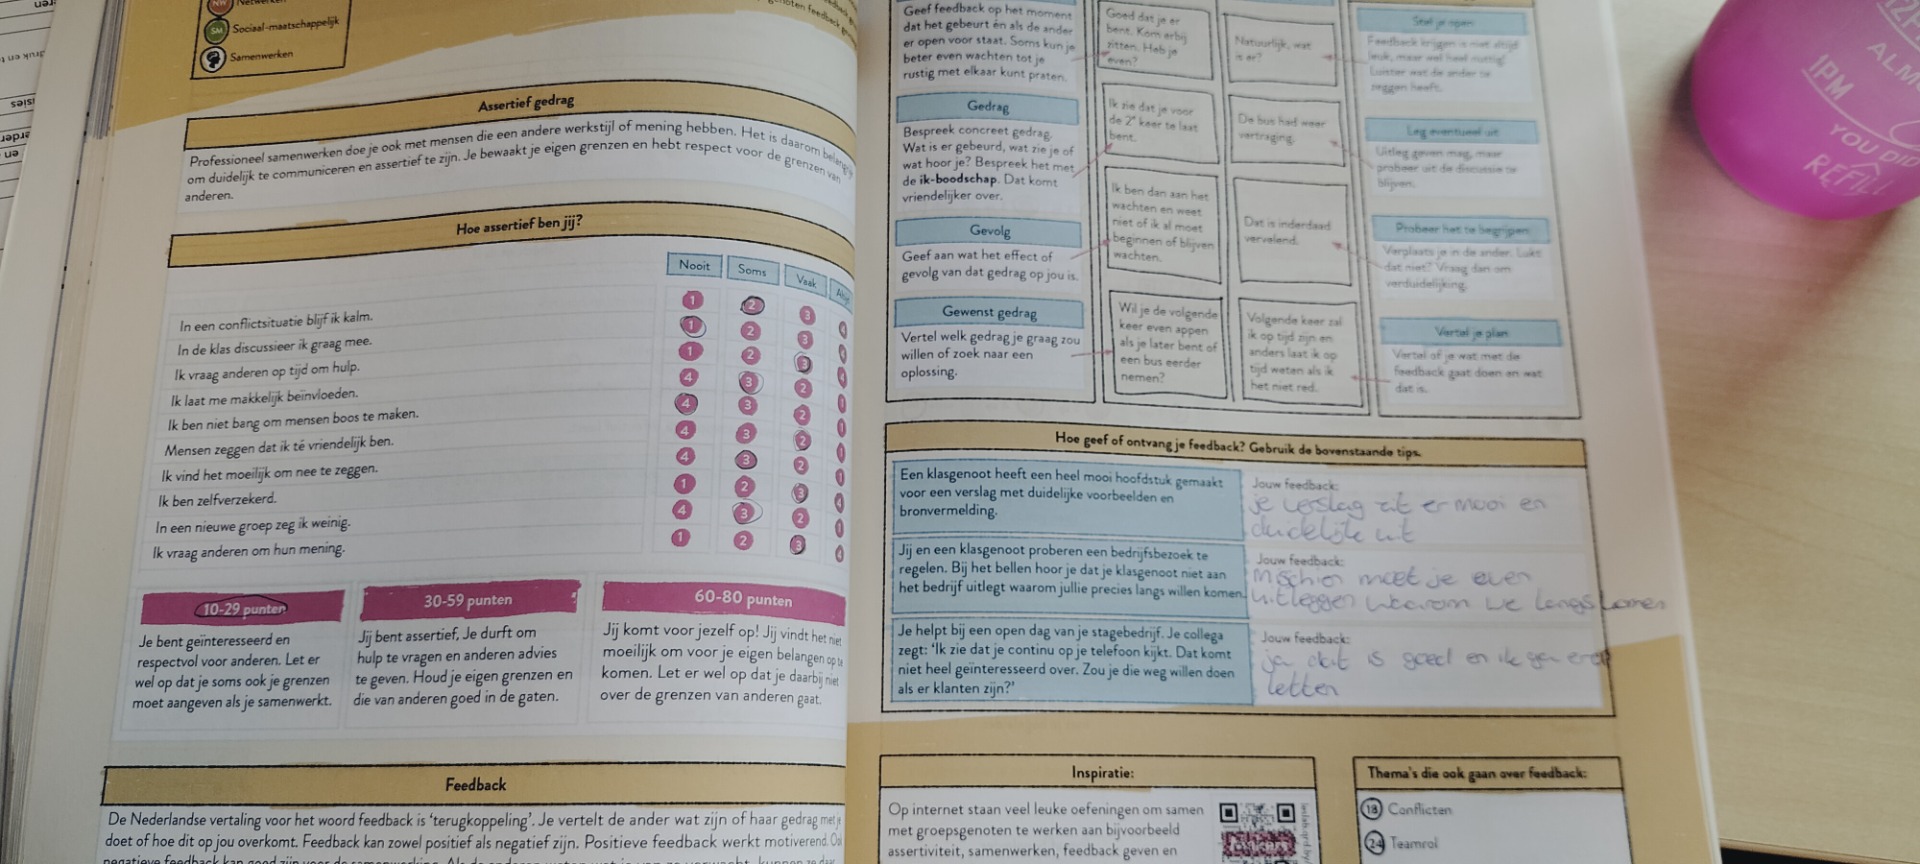 Sociaal-maatschappelijk
SM
Samenwerken
Assertief gedrag
Professioneel samenwerken doe je ook met mensen die een andere werkstijl of mening hebben. Het is daarom belangrijk
om duidelijk te communiceren en assertief te zijn. Je bewaakt je eigen grenzen en hebt respect voor de grenzen van
anderen.
Hoe assertief ben jij?
Nooit Soms Vaak
In een conflictsituatie blijf ik kalm. 1 2 3 4
In de klas discussieer ik graag mee. 1 2 3 4
Ik vraag anderen op tijd om hulp. 1 2 3 4
Ik laat me makkelijk beïnvloeden. 4 3 2 1
Ik ben niet bang om mensen boos te maken. 4 3 2 1
Mensen zeggen dat ik té vriendelijk ben. 4 3 2 1
Ik vind het moeilijk om nee te zeggen. 4 3 2 1
Ik ben zelfverzekerd. 1 2 3 4
In een nieuwe groep zeg ik weinig. 4 3 2 1
Ik vraag anderen om hun mening. 1 2 3 4
10-29 punten
Je bent geïnteresseerd en
respectvol voor anderen. Let er
wel op dat je soms ook je grenzen
moet aangeven als je samenwerkt.
30-59 punten
Jij bent assertief, Je durft om
hulp te vragen en anderen advies
te geven. Houd je eigen grenzen en
die van anderen goed in de gaten.
60-80 punten
Jij komt voor jezelf op! Jij vindt het niet
moeilijk om voor je eigen belangen op te
komen. Let er wel op dat je daarbij niet
over de grenzen van anderen gaat.
Feedback
De Nederlandse vertaling voor het woord feedback is 'terugkoppeling'. Je vertelt de ander wat zijn of haar gedrag met je
doet of hoe dit op jou overkomt. Feedback kan zowel positief als negatief zijn. Positieve feedback werkt motiverend.
Geef feedback op het moment
dat het gebeurt én als de ander
er open voor staat. Soms kun je
beter even wachten tot je
rustig met elkaar kunt praten.
Goed dat je er
bent. Kom erbij
zitten. Heb je
even?
Natuurlijk, wat
is er?
Stel je open
Feedback krijgen is niet altijd
leuk, maar wel heel nuttig!
Luister wat de ander te
zeggen heeft.
Gedrag
Bespreek concreet gedrag.
Wat is er gebeurd, wat zie je of
wat hoor je? Bespreek het met
de ik-boodschap. Dat komt
vriendelijker over.
Ik zie dat je voor
de 2e keer te laat
bent.
De bus had weer
vertraging.
Leg eventueel uit
Uitleg geven mag, maar
probeer uit de discussie te
blijven.
Gevolg
Geef aan wat het effect of
gevolg van dat gedrag op jou is.
Ik ben dan aan het
wachten en weet
niet of ik al moet
beginnen of blijven
wachten.
Dat is inderdaad
vervelend.
Probeer het te begrijpen
Verplaats je in de ander. Lukt
dat niet? Vraag dan om
verduidelijking.
Gewenst gedrag
Vertel welk gedrag je graag zou
willen of zoek naar een
oplossing.
Wil je de volgende
keer even appen
als je later bent of
een bus eerder
nemen?
Volgende keer zal
ik op tijd zijn en
anders laat ik op
tijd weten als ik
het niet red.
Vertel je plan
Vertel of je wat met de
feedback gaat doen en wat
dat is.
Hoe geef of ontvang je feedback? Gebruik de bovenstaande tips.
Een klasgenoot heeft een heel mooi hoofdstuk gemaakt
voor een verslag met duidelijke voorbeelden en
bronvermelding.
Jouw feedback:
je verslag zit er mooi en
duidelijk uit
Jij en een klasgenoot proberen een bedrijfsbezoek te
regelen. Bij het bellen hoor je dat je klasgenoot niet aan
het bedrijf uitlegt waarom jullie precies langs willen komen.
Jouw feedback:
moet je even
uitleggen waarom we langs komen
Je helpt bij een open dag van je stagebedrijf. Je collega
zegt: 'Ik zie dat je continu op je telefoon kijkt. Dat komt
niet heel geïnteresseerd over. Zou je die weg willen doen
als er klanten zijn?'
Jouw feedback:
ja dat is goed en ik ga erop
letten
Inspiratie:
Op internet staan veel leuke oefeningen om samen
met groepsgenoten te werken aan bijvoorbeeld
assertiviteit, samenwerken, feedback geven en
Thema's die ook gaan over feedback:
18 Conflicten
24 Teamrol
12P
ALM
1PM
YOU DID
REFILL